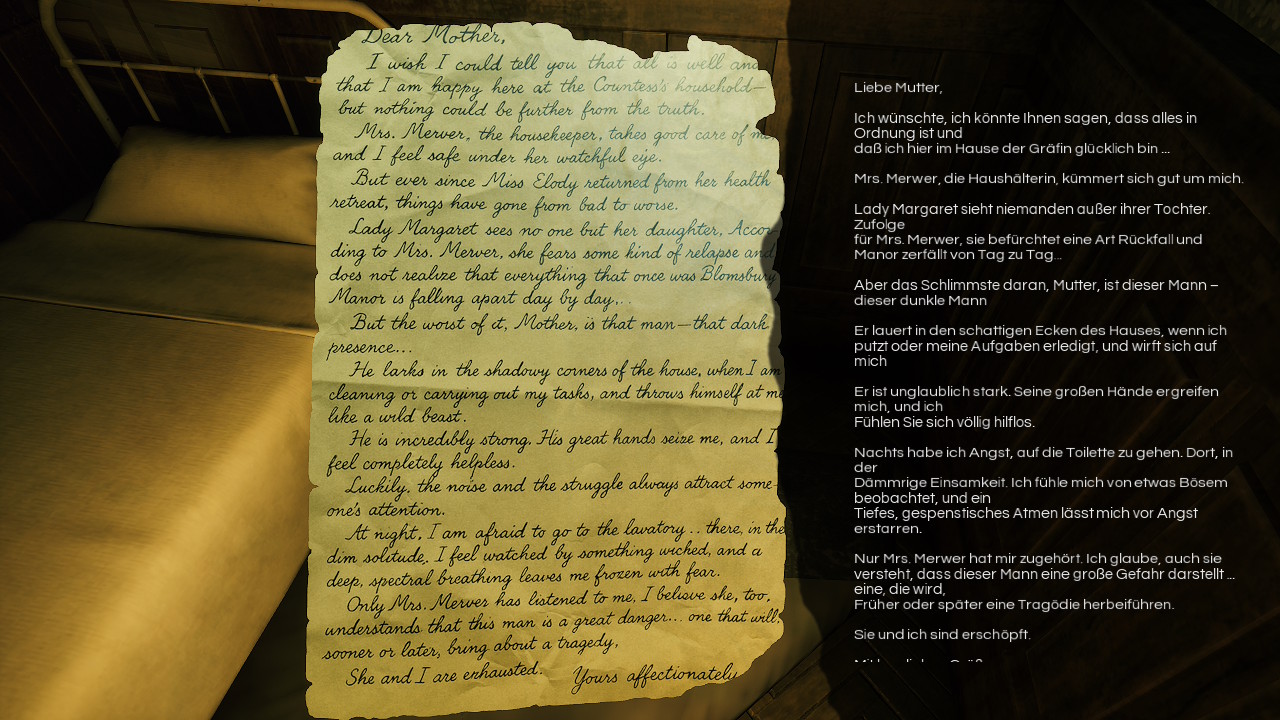 Dear Mother,
I wish I could tell you that all is well and
that I am happy here at the Countess's household—
but nothing could be further from the truth.
Mrs. Merver, the housekeeper, takes good care of me
and I feel safe under her watchful eye.
But ever since Miss Elody returned from her health
retreat, things have gone from bad to worse.
Lady Margaret sees no one but her daughter, Accor-
ding to Mrs. Merver, she fears some kind of relapse and
does not realize that everything that once was Blomsbury
Manor is falling apart day by day,..
But the worst of it, Mother, is that man—that dark
presence...
He larks in the shadowy corners of the house, when I am
cleaning or carrying out my tasks, and throws himself at me
like a wild beast.
He is incredibly strong, His great hands seize me, and I
feel completely helpless.
Luckily, the noise and the struggle always attract some-
one's attention.
At night, I am afraid to go to the lavatory .. there, in the
dim solitude, I feel watched by something wicked, and a
deep, spectral breathing leaves me frozen with fear.
Only Mrs. Merver has listened to me, I believe she, too,
understands that this man is a great danger... one that will,
sooner or later, bring about a tragedy,
She and I are exhausted.
Yours affectionately
Liebe Mutter,
Ich wünschte, ich könnte Ihnen sagen, dass alles in
Ordnung ist und
daß ich hier im Hause der Gräfin glücklich bin ...
Mrs. Merwer, die Haushälterin, kümmert sich gut um mich.
Lady Margaret sieht niemanden außer ihrer Tochter.
Zufolge
für Mrs. Merwer, sie befürchtet eine Art Rückfall und
Manor zerfällt von Tag zu Tag...
Aber das Schlimmste daran, Mutter, ist dieser Mann –
dieser dunkle Mann
Er lauert in den schattigen Ecken des Hauses, wenn ich
putzt oder meine Aufgaben erledigt, und wirft sich auf
mich
Er ist unglaublich stark. Seine großen Hände ergreifen
mich, und ich
Fühlen Sie sich völlig hilflos.
Nachts habe ich Angst, auf die Toilette zu gehen. Dort, in
der
Dämmrige Einsamkeit. Ich fühle mich von etwas Bösem
beobachtet, und ein
Tiefes, gespenstisches Atmen lässt mich vor Angst
erstarren.
Nur Mrs. Merwer hat mir zugehört. Ich glaube, auch sie
versteht, dass dieser Mann eine große Gefahr darstellt ...
eine, die wird,
Früher oder später eine Tragödie herbeiführen.
Sie und ich sind erschöpft.